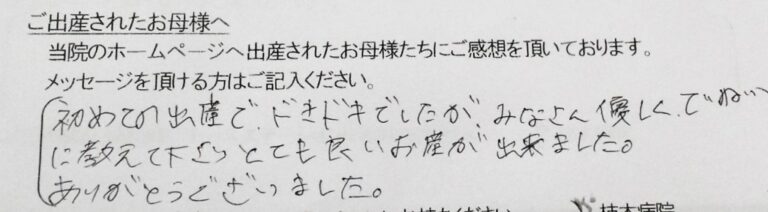 ご出産されたお母様へ
当院のホームページへ出産されたお母様たちにご感想を頂いております。
メッセージを頂ける方はご記入ください。
初めての出産で、ドキドキでしたが、みなさん優しく、ていねい
に教えて下さりとても良いお産が出来ました。
ありがとうございました。
病院